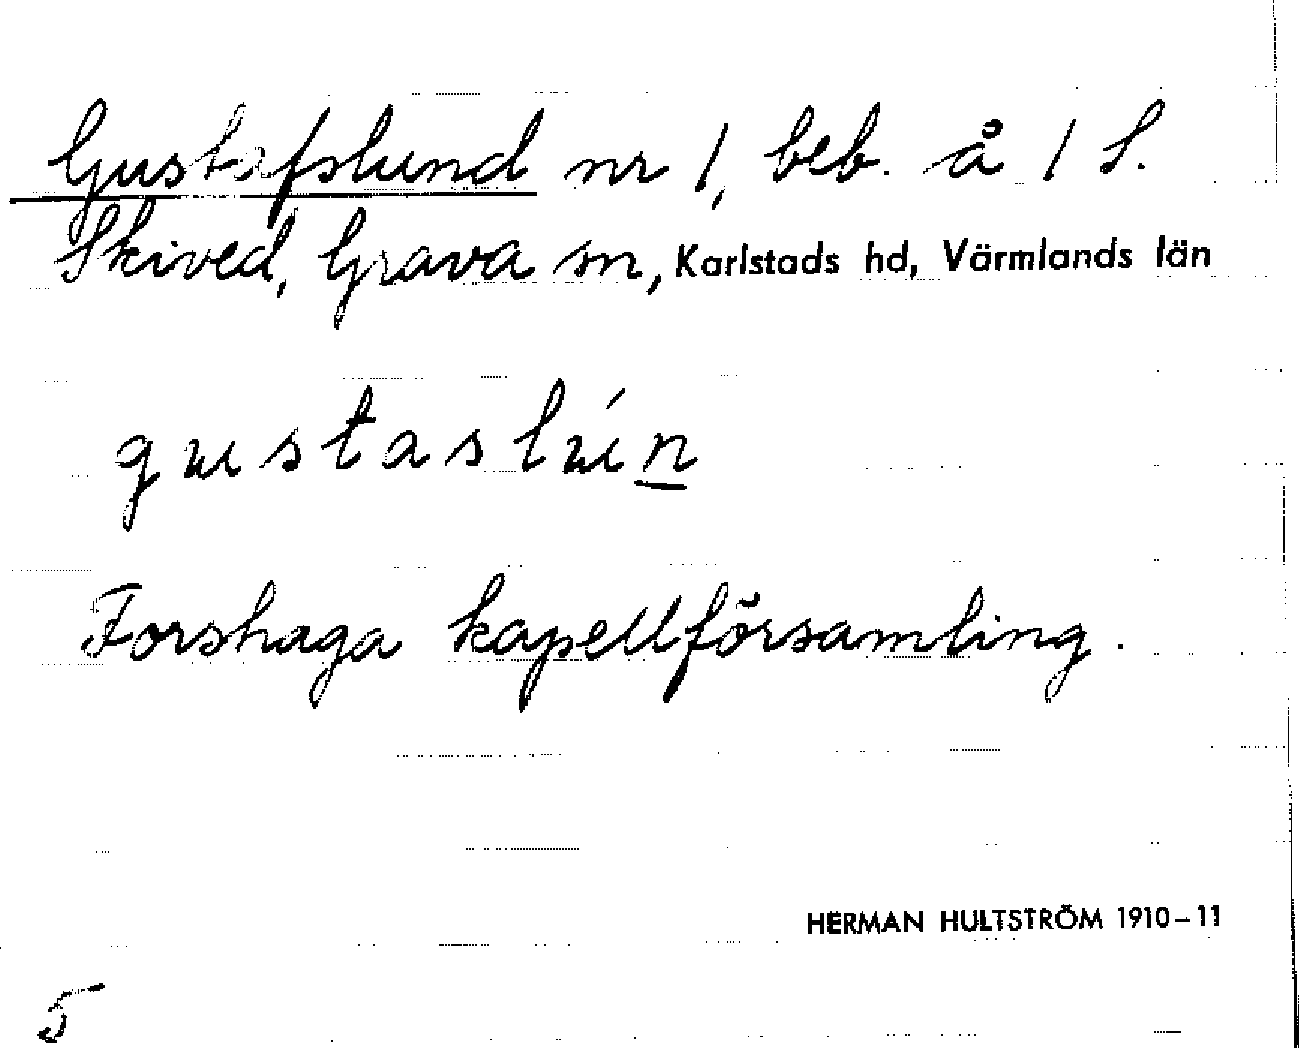 Gustafslund nr 1, beb. å 1 S.
Skived, Grava sn, Karlstads hd, Värmlands län
gustaslún
Forshaga kapellförsamling.
HERMAN HULTSTRÖM 1910–11
5